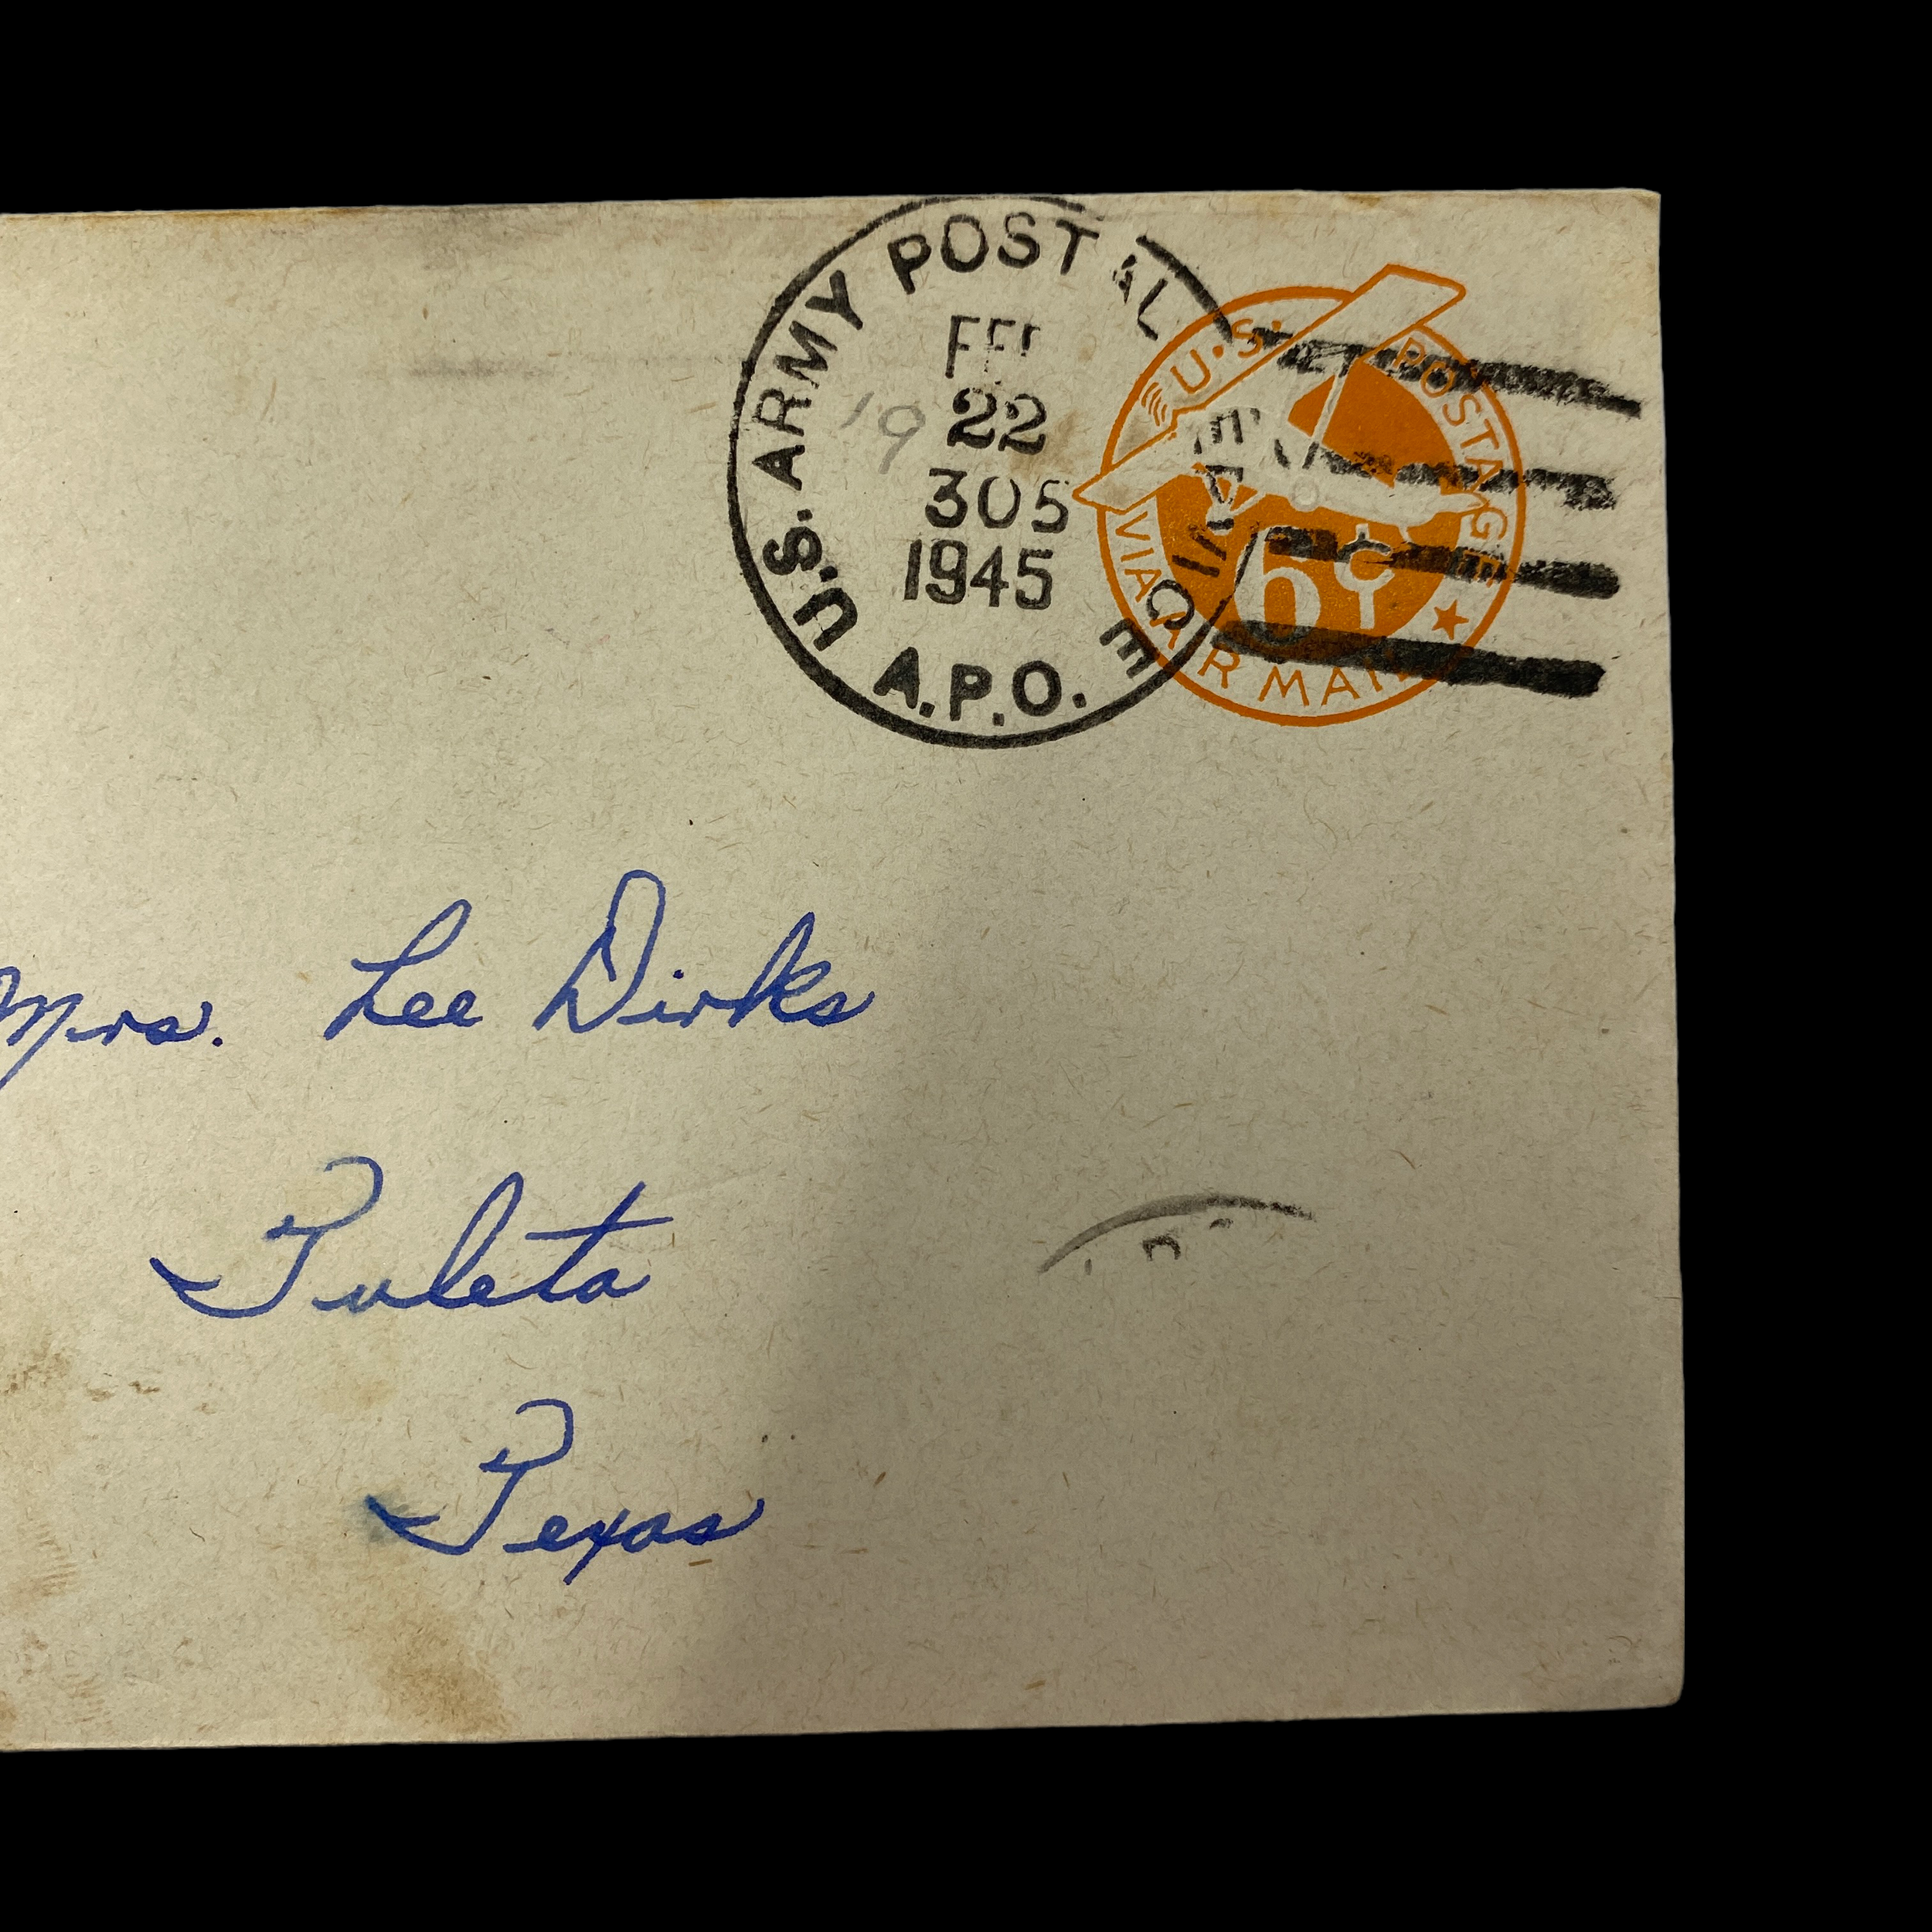 U.S. ARMY POSTAL SERVICE
A.P.O.
FEB
22
305
1945
19
U.S. POSTAGE
6¢
VIA AIR MAIL
Mrs. Lee Dirks
Tuleta
Texas